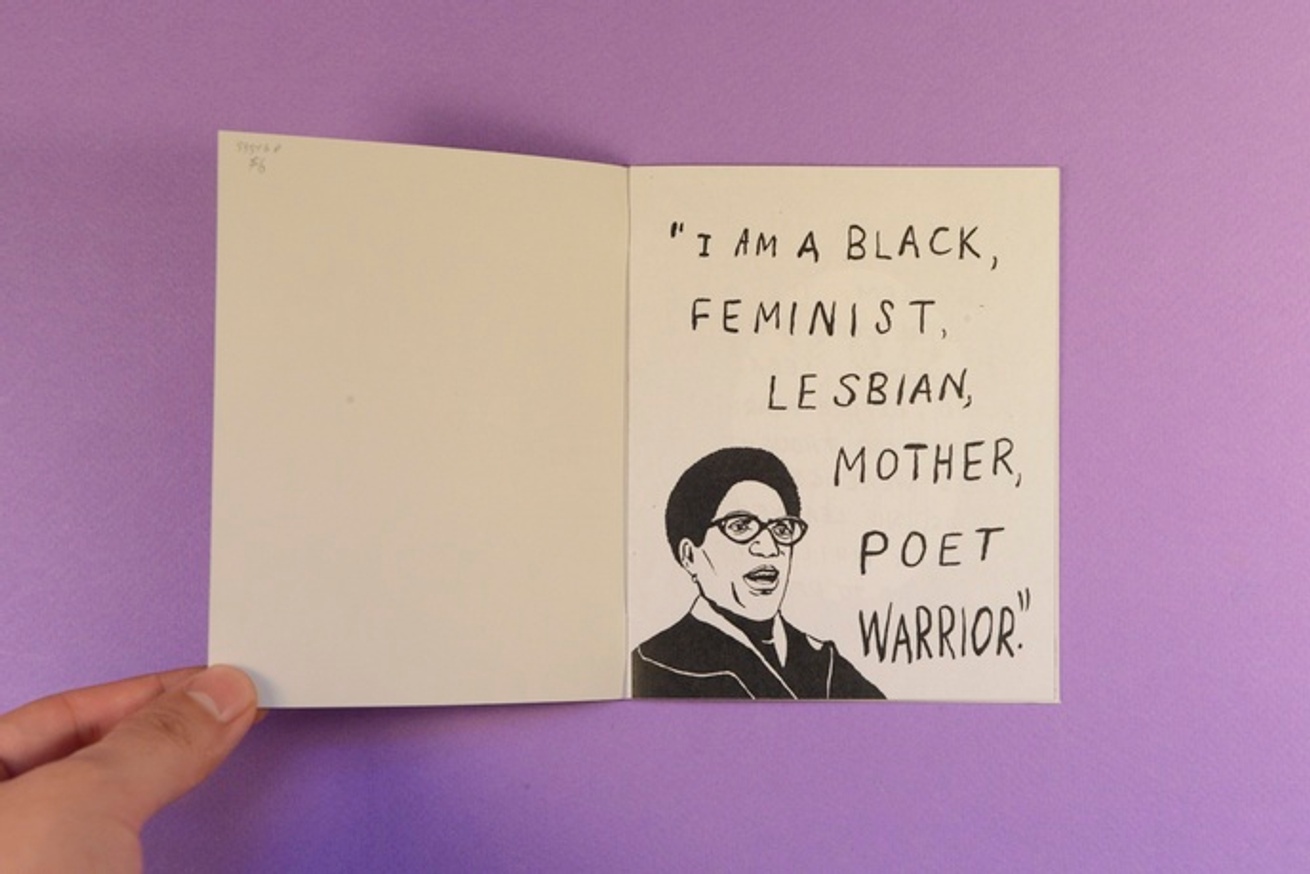 $6
"I AM A BLACK,
FEMINIST,
LESBIAN,
MOTHER,
POET
WARRIOR."